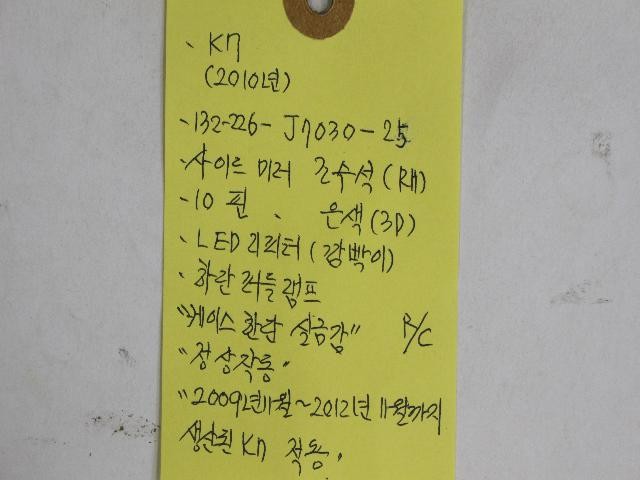 · K7
(2010년)
-132-226-J7030-25
-사이드 미러 조수석(RH)
-10 핀 、 은색(3D)
· LED 리피터(깜빡이)
· 하단 퍼들램프
"케이스 하단 실금감" P/C
"정상작동"
"2009년11월~2012년 11월까지
생산된 K7 적용.